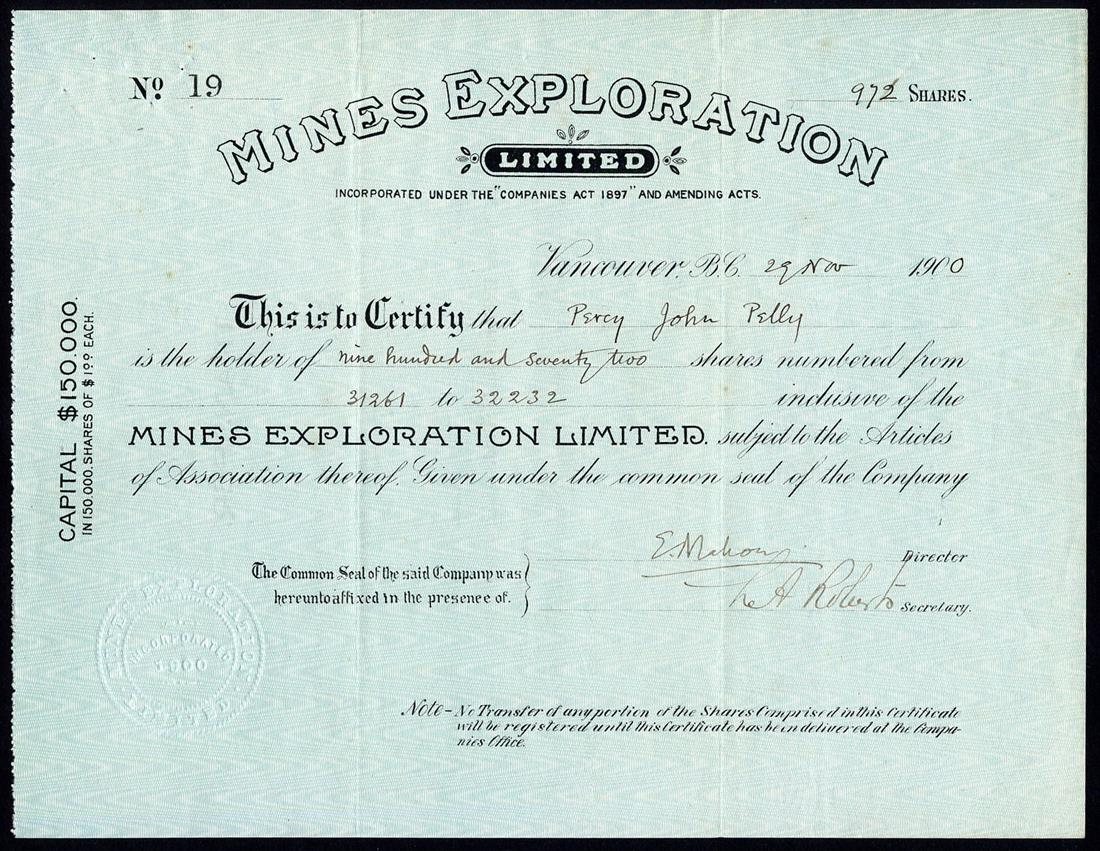 No. 19
972 SHARES.
MINES EXPLORATION
LIMITED
INCORPORATED UNDER THE "COMPANIES ACT 1897" AND AMENDING ACTS.
Vancouver, B.C. 29 Nov 1900
This is to Certify that Percy John Pelly
is the holder of nine hundred and seventy two shares numbered from
31261 to 32232 inclusive of the
MINES EXPLORATION LIMITED. subject to the Articles
of Association thereof. Given under the common seal of the Company
CAPITAL $150.000.
IN 150.000. SHARES OF $1.00 EACH.
E. Mahon Director
The Common Seal of the said Company was
hereunto affixed in the presence of.
Roberts Secretary.
MINES EXPLORATION
LIMITED
INCORPORATED
1900
Note - No Transfer of any portion of the Shares Comprised in this Certificate
will be registered until this Certificate has been delivered at the Compa-
nies Office.